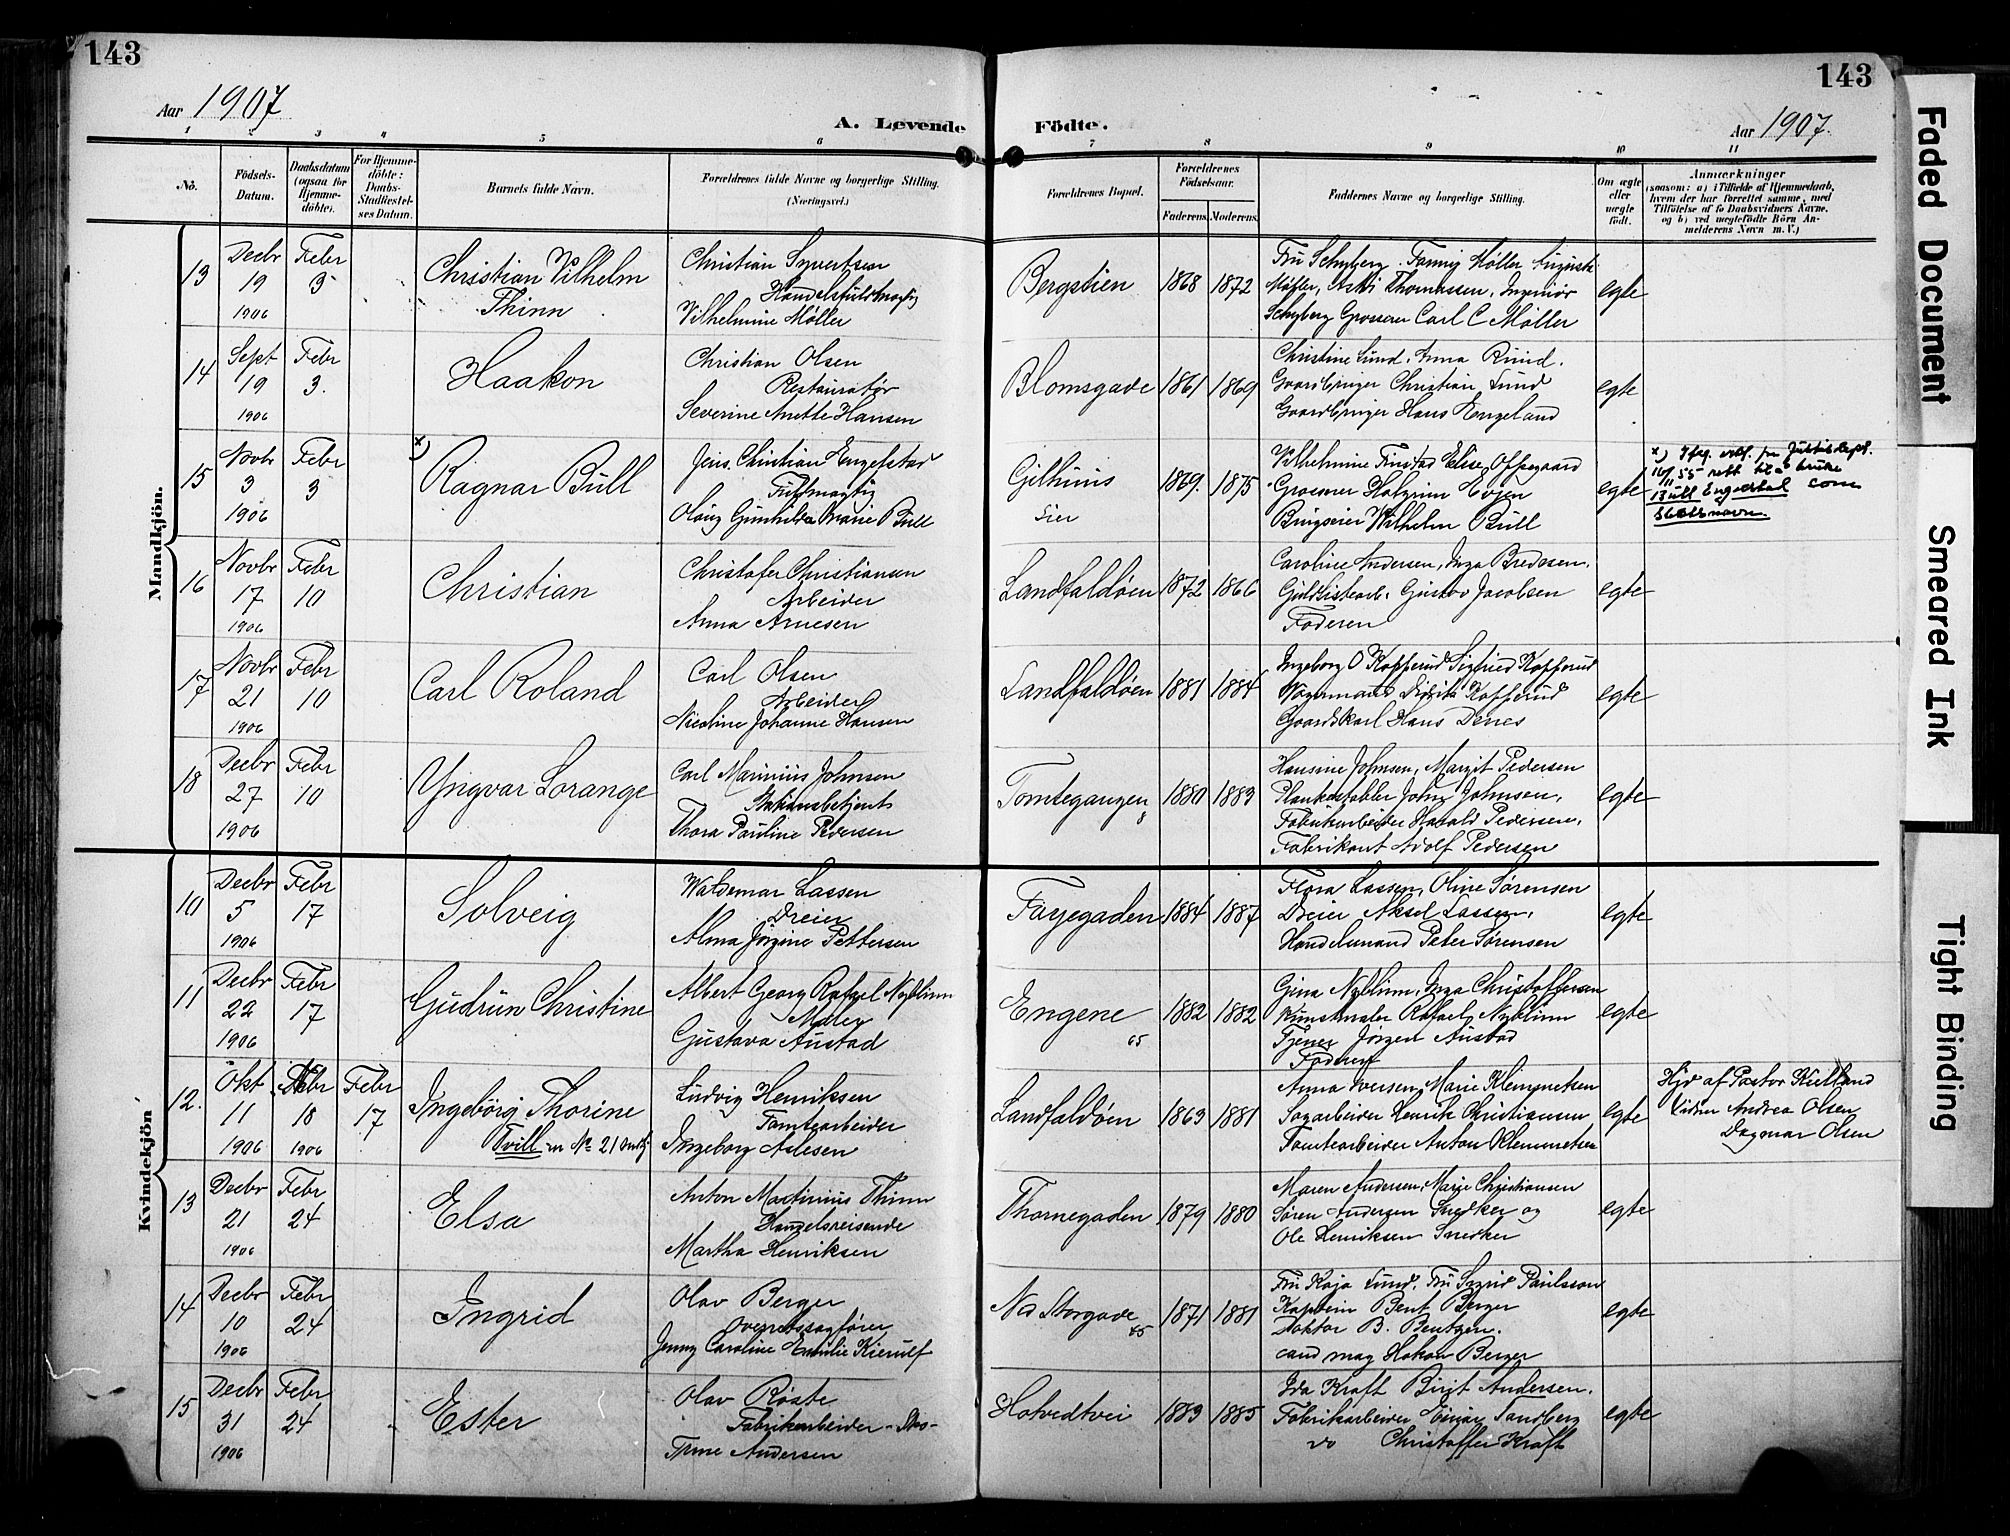 143
143
Aar 1907
A. Levende
Födte.
Aar 1907.
1 2 3 4 5 6 7 8 9 10 11
No.
Födsels-Datum.
Daabsdatum (ogsaa for Hjemme-döbte).
For Hjemme-döbte: Daabs-Stadfæstel-ses Datum.
Barnets fulde Navn.
Forældrenes fulde Navne og borgerlige Stilling.
(Næringsvei.)
Forældrenes Bopæl.
Forældrenes Födselsaar.
Faderens Moderens
Faddernes Navne og borgerlige Stilling.
Om ægte eller uægte födt.
Anmærkninger
(saasom: a) i Tilfælde af Hjemmedaab,
hvem der har forrettet samme, med
Tilföielse af to Daabsvidners Navne,
og b) ved uægtefödte Börn An-
melderens Navn m. V.)
Mandkjön.
13
Decbr 19 1906
Febr 3
Christian Vilhelm
Thinn
Christian Syvertsen
Handelsfuldmægtig
Vilhelmine Møller
Bergstien
1868 1872
Fru Schyberg. Fanny Møller August
Møller, Asti Thomassen, Ingeniør
Schyberg Grosserer Carl C Møller
egte
14
Sept 19 1906
Febr 3.
Haakon
Christian Olsen
Restauratør
Severine Anette Hansen
Blomsgade
1861 1869
Christine Lund. Anna Rund.
Gaardbruger Christian Lund
Gaardbruger Hans Engeland
egte
15
Novbr 3 1906
Febr 3
x)
Ragnar Bull
Jens Christian Engelstad
Fuldmægtig
Olaug Gunhilda Marie Bull
Gilhuus
Lier
1869. 1875
Vilhelmine Finstad Elise Oppegaard
Grosserer Halgrim Evjen
Brugseier Wilhelm Bull
egte
x) Ifølg. erkl. fra Justisdept.
16/11 55 rett til å bruke
Bull Engelstad som
slektsnavn.
16
Novbr 17 1906
Febr 10
Christian
Christofer Christiansen
Arbeider
Anna Arnesen
Landfaldøen
1872 1866
Caroline Andersen, Inga Bredesen,
Guldlistearb. Gustav Jacobsen
Faderen
egte
17
Novbr 21 1906
Febr 10
Carl Roland
Carl Olsen
Arbeider
Nicoline Johanne Hansen
Landfaldøen
1881 1884
Ingeborg O Kopperud Sigfried Kopperud
Vognmand Kopperud
Gaardskarl Hans
egte
18
Decbr 27 1906
Febr 10
Yngvar Lorange
Carl Marinius Johnsen
Stationsbetjent
Thora Pauline Pedersen
Tomtegangen
8
1880 1883
Hansine Johnsen, Margit Pedersen
Plankestabler John Johnsen,
Fabrikarbeider Harald Pedersen,
Fabrikant Adolf Pedersen
egte
Kvindekjön
10
Decbr 5 1906
Febr 17
Solveig
Waldemar Lassen
Dreier
Alma Jørgine Pettersen
Fayegaden
1884 1887
Flora Lassen, Oline Sørensen
Dreier Aksel Lassen,
Handelsmand Peter Sørensen
egte
11
Decbr 22 1906
Febr 17
Gudrun Christine
Albert Georg Rafael Nyblinn
Maler
Gustava Austad
Engene
65
1882 1882
Gina Nyblinn, Inga Christoffersen
Kunstmaler Rafael Nyblinn
Tjener Jørgen Austad
Faderen
egte
12.
Okt 11 1906
18 1906
Febr 17
Ingebörg Thorine
Tvill m No 21
Ludvig Henriksen
Tomtearbeider
Ingeborg Aslesen
Landfaldøen
1863 1881
Anna Iversen, Marie Klemmetsen
Sagarbeider Henrik Christiansen
Tomtearbeider Anton Klemmetsen
egte
Hjd af Pastor Kielland
Vidner Andrea Olsen
Dagmar Olsen
13
Decbr 21 1906
Febr 24
Elsa
Anton Martinius Thinn
Handelsreisende
Martha Henriksen
Thornegaden
1879 1880
Maren Andersen, Marie Christiansen
Søren Andersen Snedker og
Ole Henriksen Snedker
egte
14
Decbr 10 1906
Febr 24
Ingrid
Olav Berger
Overretssagfører
Jenny Caroline Emilie Kierulf
Nd Storgade
85
1871 1881
Fru Kaja Lund, Fru Sigrid Paulsson
Kaptein Bent Berger
Doktor B. Bentzen.
cand mag Hakon Berger
egte
15
Decbr 31 1906
Febr 24
Ester
Olav Røste
Fabrikarbeider
Trine Andersen
Hotvedtvei
1883 1885
Ida Kraft Birgit Andersen.
Fabrikarbeider Einar Sandberg
do Christoffer Kraft
egte
Faded Document
Smeared Ink
Tight Binding